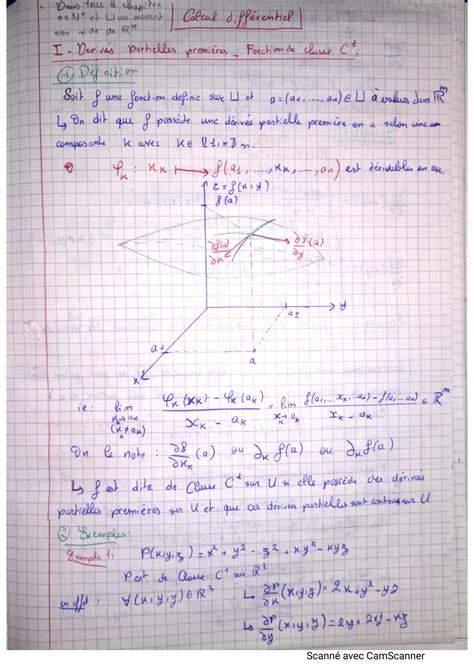 Dans tous le chapitre
n ∈ N* et U un ouvert
non vide de R^n
Calcul différentiel
I - Derivés Partielles premières - Fonction de classe C^1
① Définition
Soit f une fonction définie sur U et a = (a1, ..., an) ∈ U à valeurs dans R^m
↳ On dit que f possède une dérivée partielle première en a selon une
composante K avec K ∈ ⟦1,n⟧ si.
φ_K : x_K ⟼ f(a1, ..., x_K, ..., an) est dérivable en a_K
z = f(x, y)
f(a)
∂f/∂x (a)
∂f/∂y (a)
y
a2
a1
a
x
ie: lim x_K→a_K (x_K ≠ a_K) (φ_K(x_K) - φ_K(a_K))/(x_K - a_K) = lim x_K→a_K (f(a1,...x_K,...an) - f(a1...an))/(x_K - a_K) ∈ R^m
On le note : ∂f/∂x_K (a) ou ∂_K f(a) ou ∂_K f(a)
↳ f est dite de Classe C^1 sur U si elle possède des dérivés
partielles premières sur U et que ces dérivés partielles sont continues sur U
② Exemples:
Exemple 1: P(x,y,z) = x² + y² - z² + xy² - xyz
P est de Classe C^1 sur R^3
en effet: ∀(x,y,z) ∈ R^3 ↳ ∂P/∂x (x,y,z) = 2x + y² - yz
↳ ∂P/∂y (x,y,z) = 2y + 2xy - xz
Scanné avec CamScanner